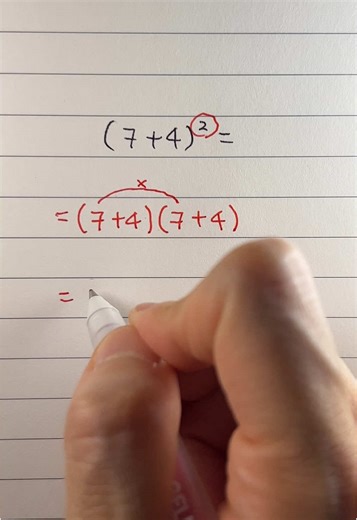 (7+4)²=
×
=(7+4)(7+4)
=